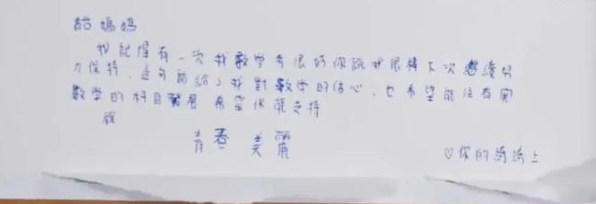 給媽媽
我記得有一次我數學考很好你說我很棒下次繼續努
力保持,這句話給了我對數學的信心,也希望能往有關
數學的科目發展 希望你能支持
祝
青春美麗
♡你的 上